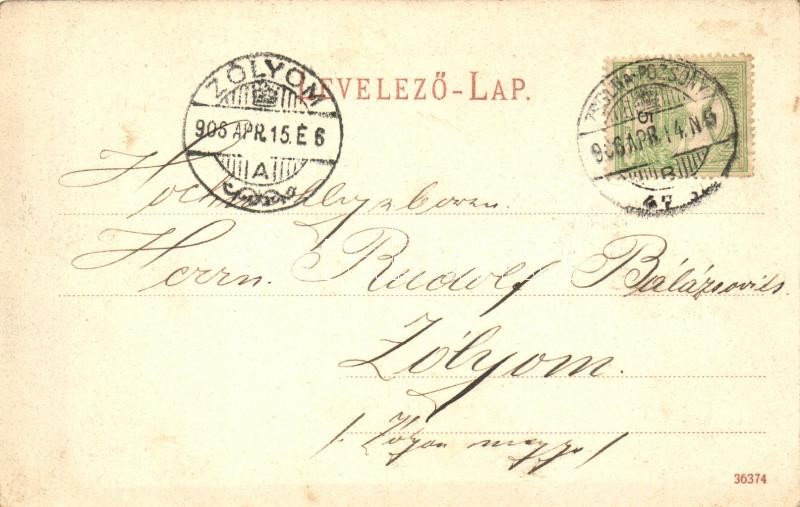 LEVELEZŐ-LAP.
ZÓLYOM
906 APR. 15. É 6
A
ZSOLNA-POZSONY
5
906 APR. 14. N 5
B
47
Herrn. Rudolf Balázsovits
Zólyom.
36374